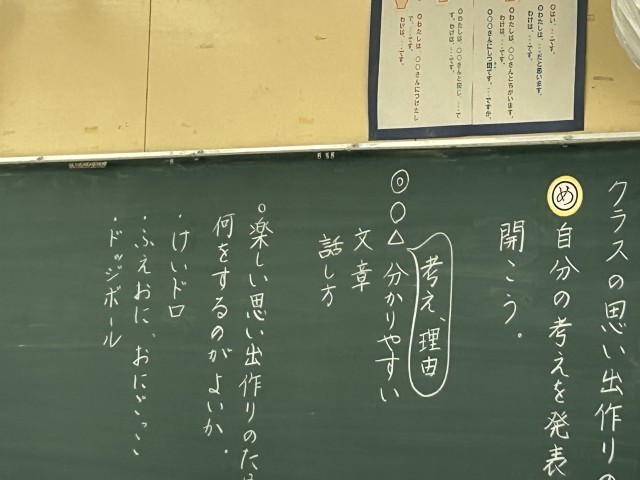 ○はい、…です。
○わたしは、…だと思います。
わけは、…です。
○わたしは、○○さんとちがいます。
わけは、…です。
○○○さんにしつ問です。…ですか。
○わたしは、○○さんと同じ、…で
す。わけは、…です。
○わたしは、○○さんにつけたし
で、…です。
わけは、…です。
クラスの思い出作りの
め 自分の考えを発表
開こう。
考え、理由
◎○△ 分かりやすい
文章
話し方
○楽しい思い出作りのため
何をするのがよいか。
・けいドロ
・ふえおに、おにごっこ
・ドッジボール